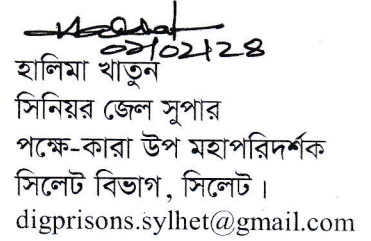 ০৮/০২/২৪
হালিমা খাতুন
সিনিয়র জেল সুপার
পক্ষে-কারা উপ মহাপরিদর্শক
সিলেট বিভাগ, সিলেট।
digprisons.sylhet@gmail.com